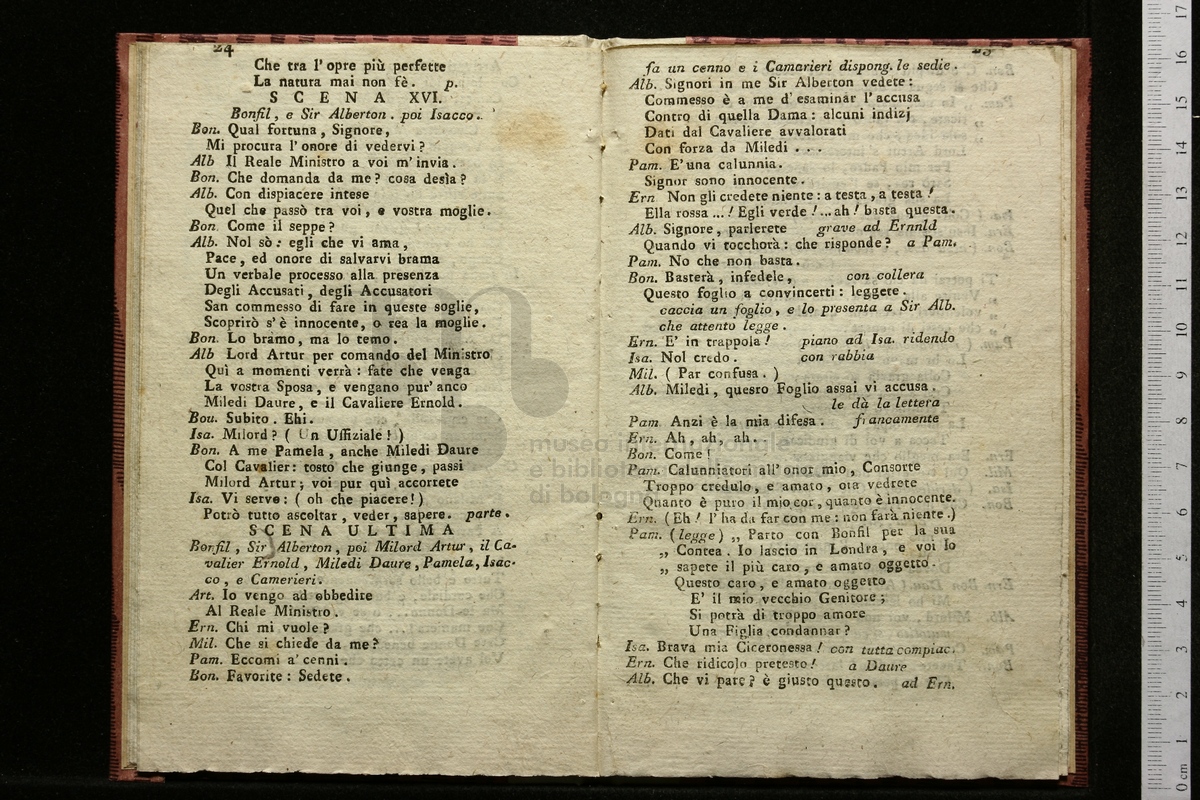 24
Che tra l'opre più perfette
La natura mai non fè. p.
SCENA XVI.
Bonfil, e Sir Alberton. poi Isacco.
Bon. Qual fortuna, Signore,
Mi procura l'onore di vedervi?
Alb Il Reale Ministro a voi m'invia.
Bon. Che domanda da me? cosa desìa?
Alb. Con dispiacere intese
Quel che passò tra voi, e vostra moglie.
Bon. Come il seppe?
Alb. Nol sò: egli che vi ama,
Pace, ed onore di salvarvi brama
Un verbale processo alla presenza
Degli Accusati, degli Accusatori
San commesso di fare in queste soglie,
Scoprirò s'è innocente, o rea la moglie.
Bon. Lo bramo, ma lo temo.
Alb Lord Artur per comando del Ministro
Quì a momenti verrà: fate che venga
La vostra Sposa, e vengano pur'anco
Miledi Daure, e il Cavaliere Ernold.
Bou. Subito. Ehi.
Isa. Milord? ( Un Uffiziale! )
Bon. A me Pamela, anche Miledi Daure
Col Cavalier: tosto che giunge, passi
Milord Artur; voi pur quì accorrete
Isa. Vi servo: ( oh che piacere! )
Potrò tutto ascoltar, veder, sapere. parte.
SCENA ULTIMA
Bonfil, Sir Alberton, poi Milord Artur, il Ca-
valier Ernold, Miledi Daure, Pamela, Isac-
co, e Camerieri.
Art. Io vengo ad obbedire
Al Reale Ministro.
Ern. Chi mi vuole?
Mil. Che si chiede da me?
Pam. Eccomi a' cenni.
Bon. Favorite: Sedete.
fa un cenno e i Camarieri dispong. le sedie.
Alb. Signori in me Sir Alberton vedete:
Commesso è a me d'esaminàr l'accusa
Contro di quella Dama: alcuni indizj
Dati dal Cavaliere avvalorati
Con forza da Miledi . . .
Pam. E'una calunnia.
Signor sono innocente.
Ern Non gli credete niente: a testa, a testa!
Ella rossa ...! Egli verde!...ah! basta questa.
Alb. Signore, parlerete grave ad Ernnld
Quando vi tocchorà: che risponde? a Pam.
Pam. No che non basta.
Bon. Basterà, infedele, con collera
Questo foglio a convincerti: leggete.
caccia un foglio, e lo presenta a Sir Alb.
che attento legge.
Ern. E' in trappola! piano ad Isa. ridendo
Isa. Nol credo. con rabbia
Mil. ( Par confusa. )
Alb. Miledi, questo Foglio assai vi accusa.
le dà la lettera
Pam. Anzi è la mia difesa. francamente
Ern. Ah, ah, ah.
Bon. Come!
Pam. Calunniatori all'onor mio, Consorte
Troppo credulo, e amato, ota vedrete
Quanto è puro il mio cor, quanto è innocente.
Ern. (Eh! l'ha da far con me: non farà niente.)
Pam. (legge) „ Parto con Bonfil per la sua
„ Contea. Io lascio in Londra, e voi lo
„ sapete il più caro, e amato oggetto.
Questo caro, e amato oggetto
E' il mio vecchio Genitore;
Si potrà di troppo amore
Una Figlia condannar?
Isa. Brava mia Ciceronessa! con tutta compiac.
Ern. Che ridicolo pretesto! a Daure
Alb. Che vi pare? è giusto questo. ad Ern.